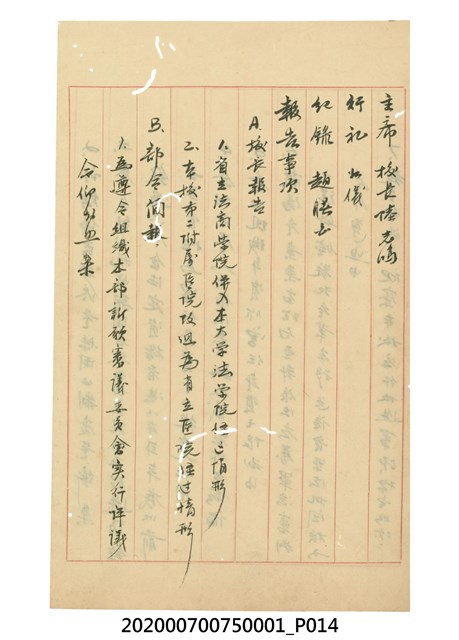 主席 校長陸志鴻
行礼 如儀
紀錄 趙
報告事項
A.校長報告
1.省立法商学院併入本大学法学院經過情形
2.本校第二附屬医院改回為省立医院經过情形
B.部令
1.為遵令組織本部訴願審議委員會实行評議
令仰知照案
202000700750001_P014